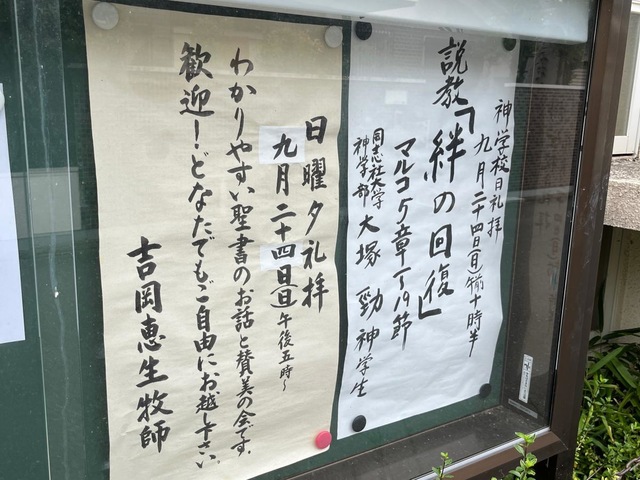 神学校日礼拝
九月二十四日(日)朝十時半
説教「絆の回復」
マルコ5章1〜19節
同志社大学
神学部 大塚 勁 神学生
日曜夕礼拝
九月二十四日(日)午後五時〜
わかりやすい聖書のお話と賛美の会です。
歓迎！どなたでもご自由にお越し下さい。
吉岡恵生牧師